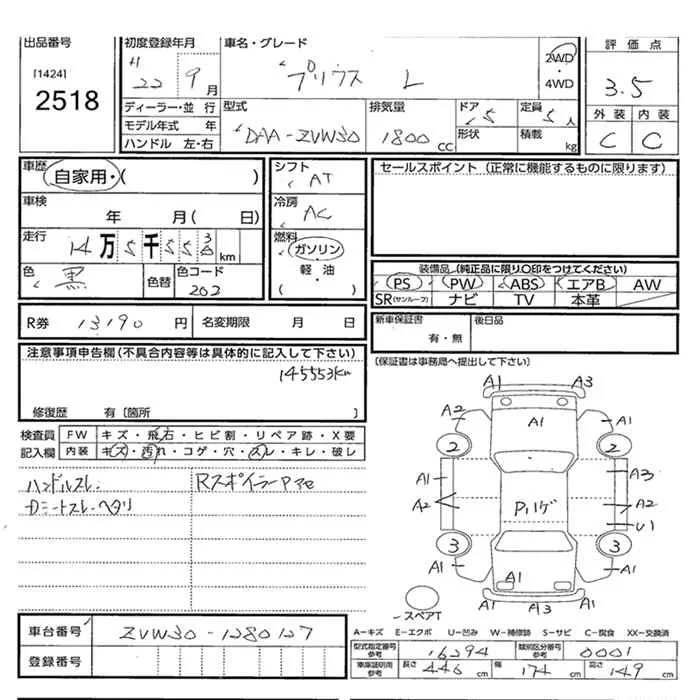 出品番号
[1424]
2518
初度登録年月
H
22 9月
ディーラー・並 行
モデル年式 年
ハンドル 左・右
車名・グレード
プリウス L
2WD
4WD
型式
DAA-ZVW30
排気量
1800cc
ドア 5
形状
定員 5人
積載 kg
評価点
3.5
外装 内装
C C
車歴
自家用・( )
車検
年 月( 日)
走行
14万5千553km
色
黒
色替
色コード
202
シフト
AT
冷房
AC
燃料
ガソリン・
軽・油
( )
セールスポイント (正常に機能するものに限ります)
装備品 (純正品に限り〇印をつけてください)
PS PW ABS エアB AW
SR(サンルーフ) ナビ TV 本革
R券 13190円
名変期限 月 日
新車保証書
有・無
後日品
(保証書は事務局へ提出して下さい)
注意事項申告欄(不具合内容等は具体的に記入して下さい)
145553km
修復歴 有〔箇所 〕
検査員
記入欄
FW キズ・飛石・ヒビ割・リペア跡・X要
内装 キズ・汚れ・コゲ・穴・スレ・キレ・破レ
ハンドルスレ
Dシートスレ・ヘタリ
Rスポイラー
A1 A3
A2 A1 A1
2 2
A1 A3
A2 A2
U1
3 3
A1 A1 A1
A1 A3 A1
スペアT
A-キズ E-エクボ U-凹み W-補修跡 S-サビ C-腐食 XX-交換済
車台番号 ZVW30-1280127
登録番号
型式指定番号
参考
16294
類別区分番号
参考
0001
車庫証明用
参考
長さ 446cm
幅 174cm
高さ 149cm